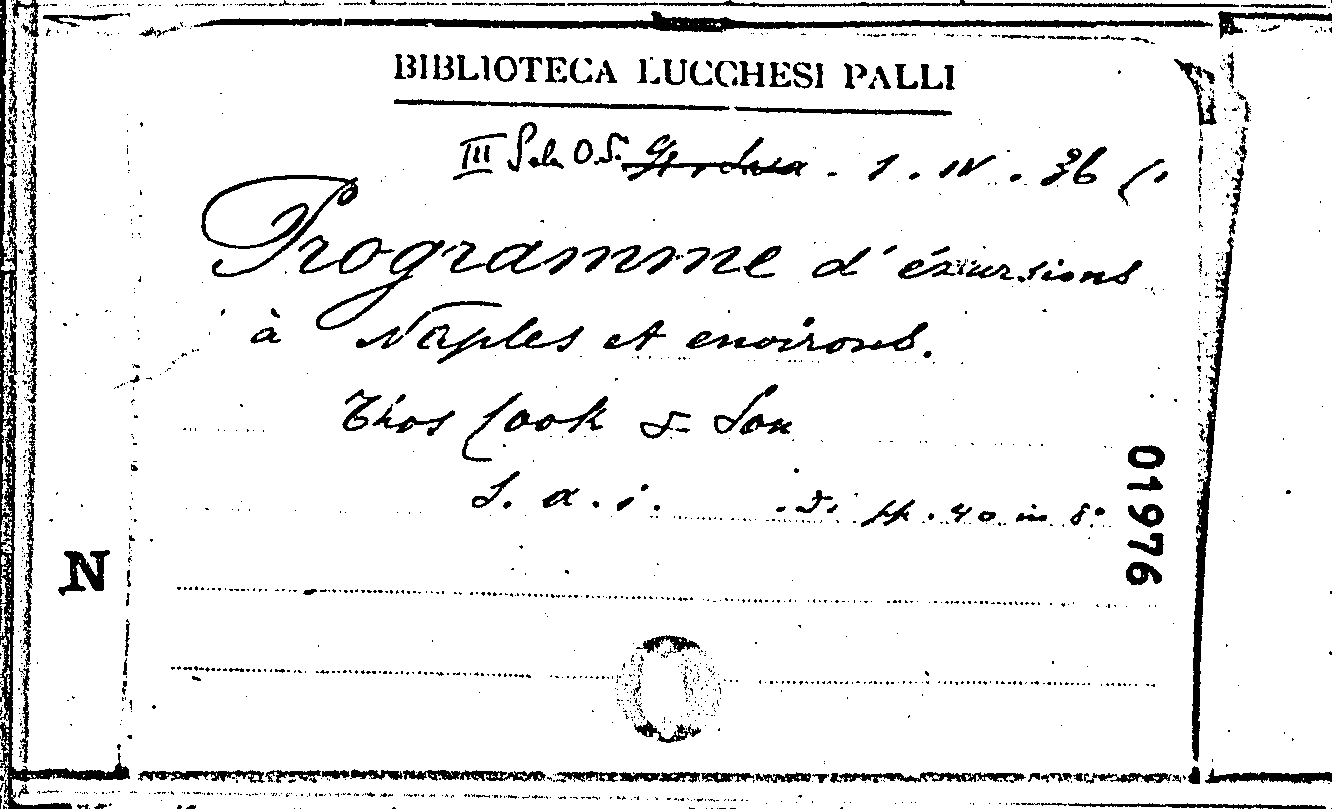 BIBLIOTECA LUCCHESI PALLI
III Sala O.S. . 1 . IV . 36 (.
Programme d'éxursions
à Naples et environs.
Thos Cook & Son
S. a. i. . Di pp. 40 in 8°
N
01976